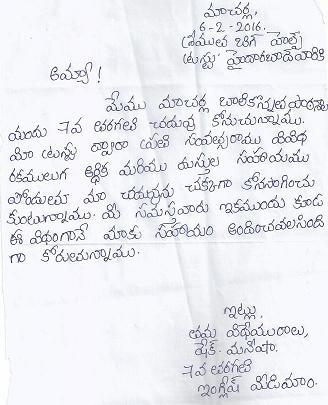 మాచర్ల,
6-2-2016.
హైదారబాదువారికి
అమ్మా!
మేము మాచర్ల బాలికోన్నత పాఠశాల
యందు 7వ తరగతి చదువు కొనుచున్నాము.
మీ ట్రస్టు ద్వారా ప్రతి సంవత్సరము వివిధ
రకములుగ ఆర్థిక మరియు వస్తుల సహాయము
పొందుతు మా చదువును చక్కగా కొనసాగించు
కుంటున్నాము. మీ సమస్తవారు ఇకముందు కుడ
ఈ విధంగానే మాకు సహాయం అందించవలసింది
గా కోరుచున్నాము.
ఇట్లు,
తమ విధేయురాలు,
షేక్. మనీషా.
7వ తరగతి
ఇంగ్లీష్ మీడియం.